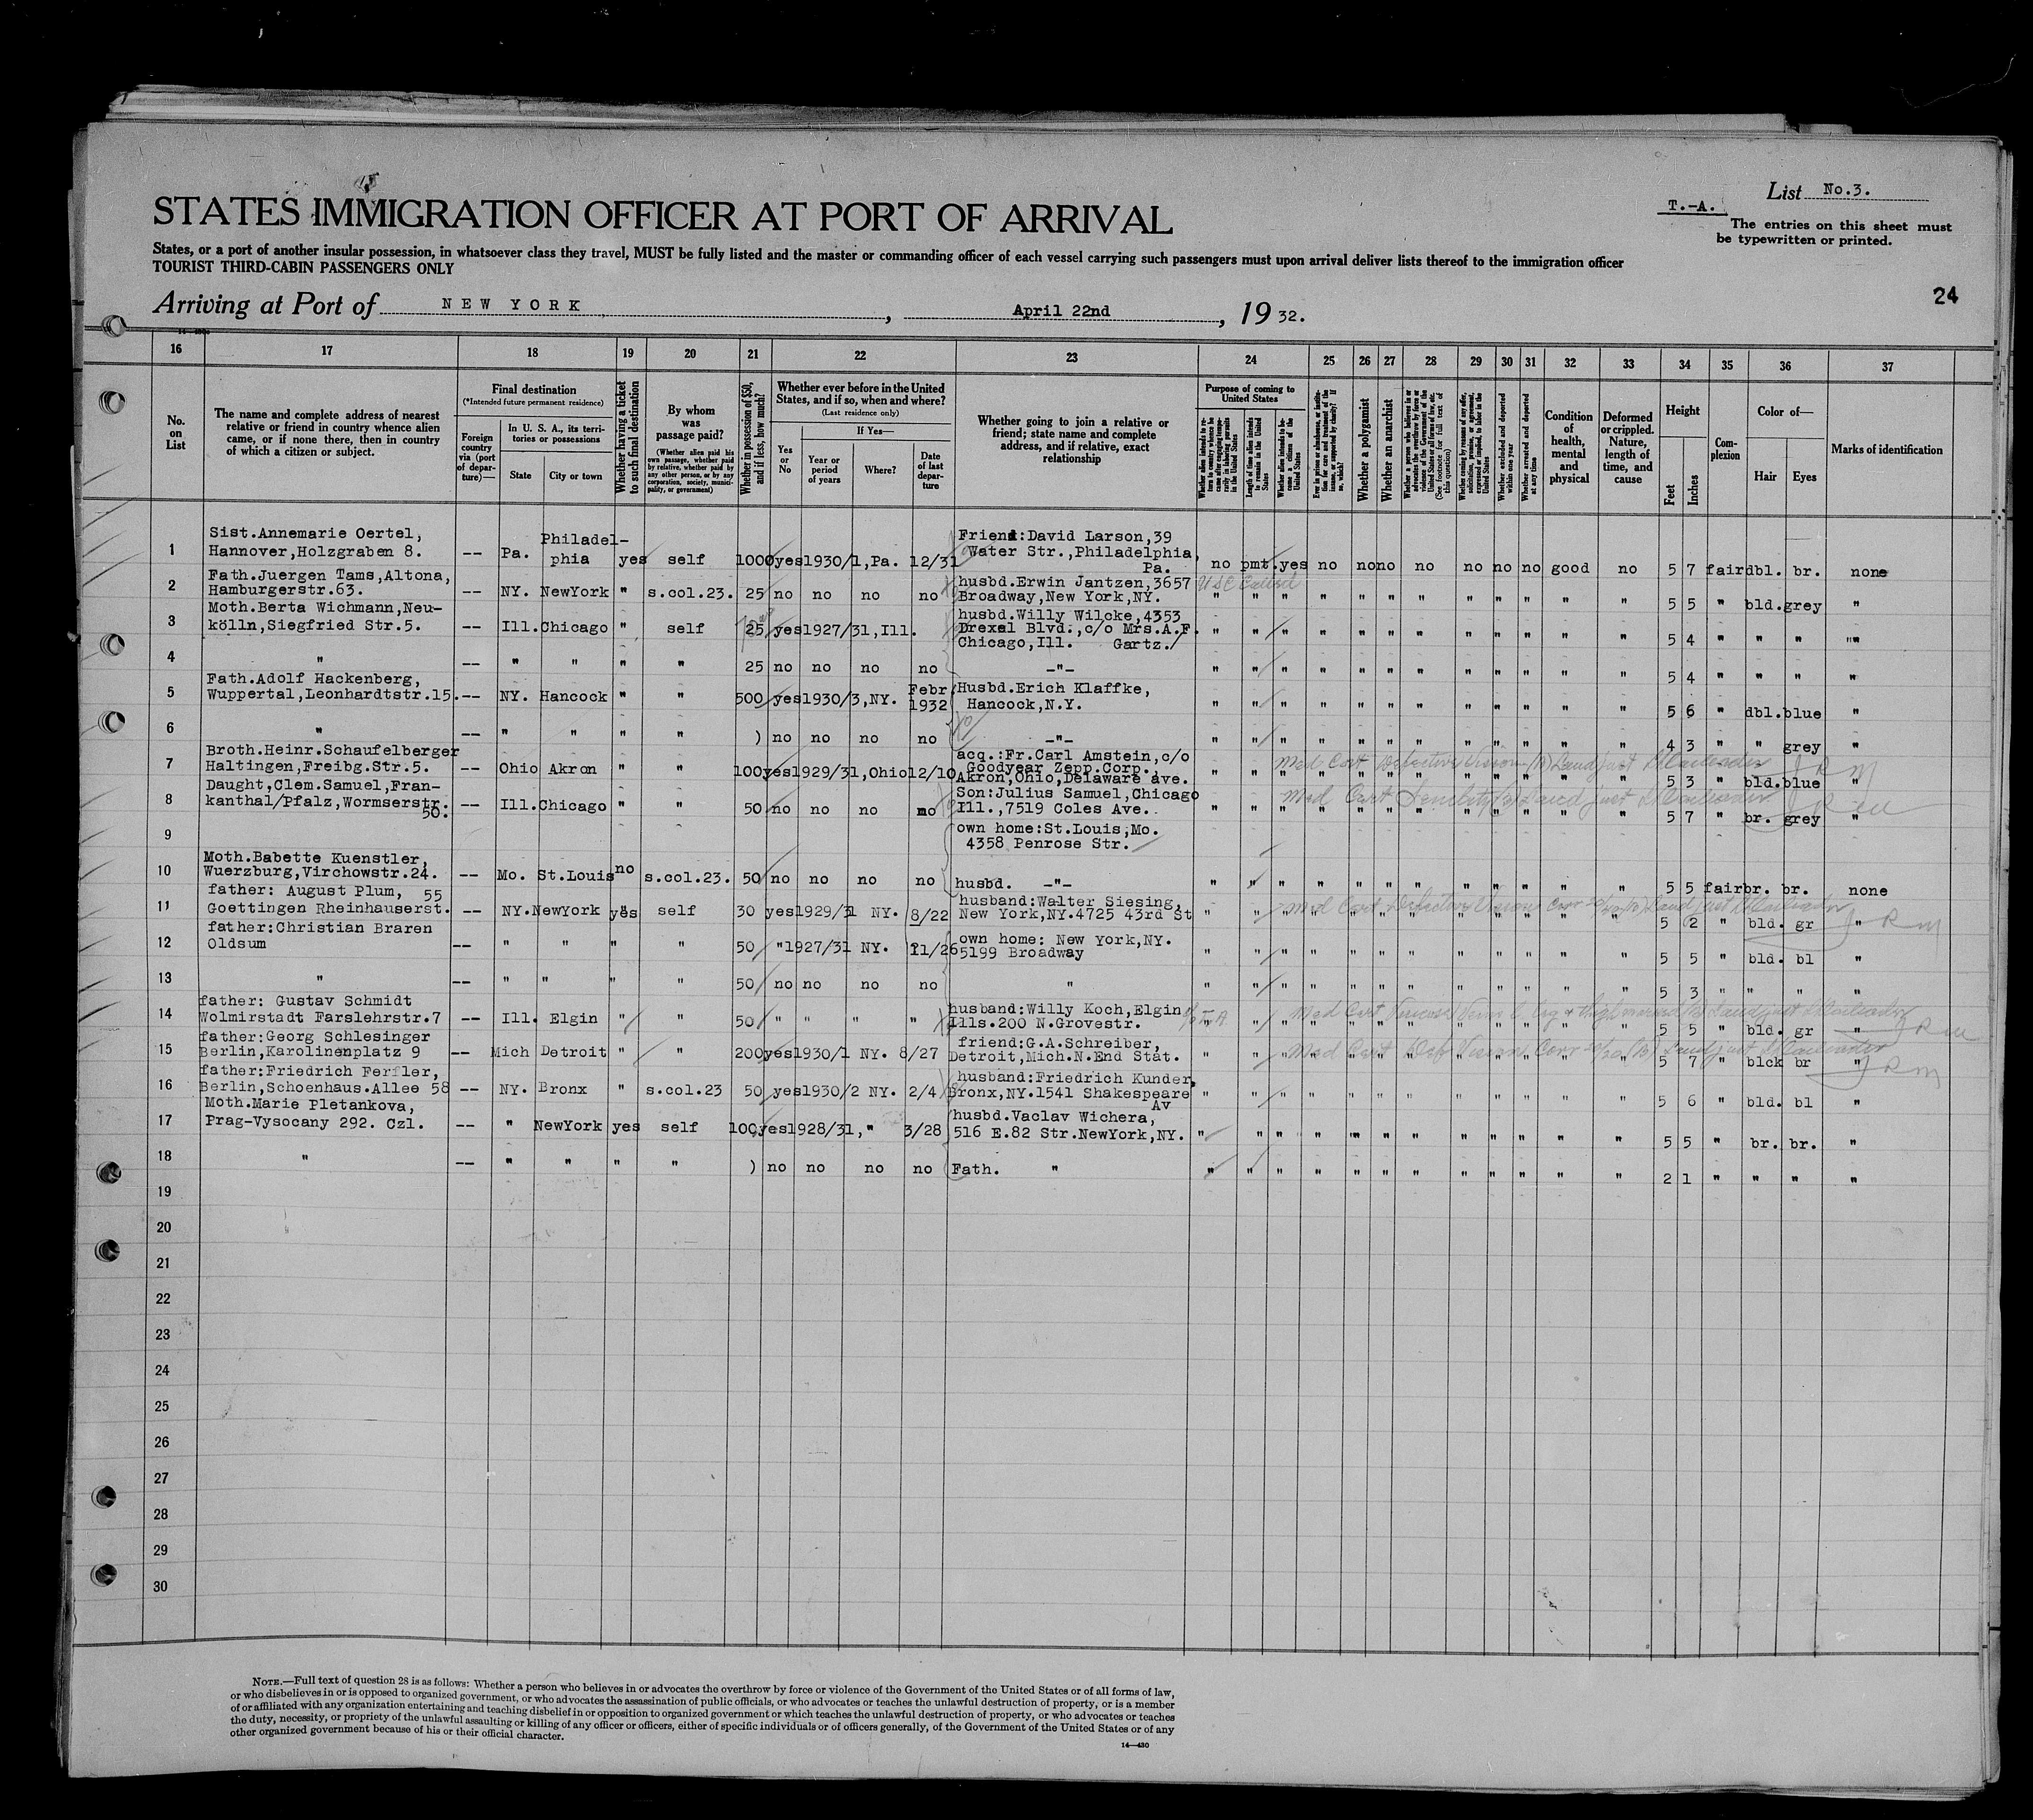 List No.3.
T.-A.
STATES IMMIGRATION OFFICER AT PORT OF ARRIVAL
The entries on this sheet must
be typewritten or printed.
States, or a port of another insular possession, in whatsoever class they travel, MUST be fully listed and the master or commanding officer of each vessel carrying such passengers must upon arrival deliver lists thereof to the immigration officer
TOURIST THIRD-CABIN PASSENGERS ONLY
24
Arriving at Port of NEW YORK, April 22nd, 19 32.
16 17 18 19 20 21 22 23 24 25 26 27 28 29 30 31 32 33 34 35 36 37
No. on List
The name and complete address of nearest relative or friend in country whence alien came, or if none there, then in country of which a citizen or subject.
Final destination
(*Intended future permanent residence)
Foreign country via (port of departure)—
In U. S. A., its territories or possessions
State
City or town
Whether having a ticket to such final destination
By whom was passage paid?
(Whether alien paid his own passage, whether paid by relative, whether paid by any other person, or by any corporation, society, municipality, or government)
Whether in possession of $50, and if less, how much?
Whether ever before in the United States, and if so, when and where?
(Last residence only)
Yes or No
If Yes—
Year or period of years
Where?
Date of last departure
Whether going to join a relative or friend; state name and complete address, and if relative, exact relationship
Purpose of coming to United States
Length of time alien intends to remain in the United States
Whether alien intends to become a citizen of the United States
Whether a polygamist
Whether an anarchist
Whether excluded and deported within one year
Whether arrested and deported at any time
Condition of health, mental and physical
Deformed or crippled. Nature, length of time, and cause
Height
Feet
Inches
Complexion
Color of—
Hair
Eyes
Marks of identification
1 Sist.Annemarie Oertel, Hannover,Holzgraben 8. -- Pa. Philadel-phia yes self 1000 yes 1930/1,Pa. 12/31 Friend:David Larson,39 Water Str.,Philadelphia, Pa. no pmt. yes no no no no no no no good no 5 7 fair dbl. br. none
2 Fath.Juergen Tams,Altona, Hamburgerstr.63. -- NY. NewYork " s.col.23. 25 no no no no husbd.Erwin Jantzen,3657 Broadway,New York,NY. " " " " " " " " " " " " 5 5 " bld. grey "
3 Moth.Berta Wichmann,Neu-kölln,Siegfried Str.5. -- Ill. Chicago " self 25 yes 1927/31,Ill. husbd.Willy Wilcke,4353 Drexel Blvd.,c/o Mrs.A.F. Chicago,Ill. Gartz./ " " " " " " " " " " " " 5 4 " " " "
4 " -- " " " " 25 no no no no -"- " " " " " " " " " " " " 5 4 " " " "
5 Fath.Adolf Hackenberg, Wuppertal,Leonhardtstr.15. -- NY. Hancock " " 500 yes 1930/3,NY. Febr 1932 Husbd.Erich Klaffke, Hancock,N.Y. " " " " " " " " " " " " 5 6 " dbl. blue "
6 " -- " " " " ) no no no no -"- " " " " " " " " " " " " 4 3 " " grey "
7 Broth.Heinr.Schaufelberger Haltingen,Freibg.Str.5. -- Ohio Akron " " 100 yes 1929/31,Ohio 12/10 acq.:Fr.Carl Amstein,c/o Goodyear Zepp.Corp., Akron,Ohio,Delaware ave. " " " " " " " " " " " " 5 3 " bld. blue "
Med Cert Defective Vision
8 Daught,Clem.Samuel,Fran-kanthal/Pfalz,Wormserstr. 50. -- Ill. Chicago " " 50 no no no no Son:Julius Samuel,Chicago Ill.,7519 Coles Ave. " " " " " " " " " " " " 5 7 " br. grey "
Med Cert Senility
9 own home:St.Louis,Mo. 4358 Penrose Str.
10 Moth.Babette Kuenstler, Wuerzburg,Virchowstr.24. -- Mo. St.Louis no s.col.23. 50 no no no no husbd. -"- " " " " " " " " " " " " 5 5 fair br. br. none
11 father: August Plum, 55 Goettingen Rheinhauserst. -- NY. NewYork yes self 30 yes 1929/31 NY. 8/22 husband:Walter Siesing, New York,NY.4725 43rd St " " " " " " " " " " " " 5 2 " bld. gr "
Med Cert Defective Vision
12 father:Christian Braren Oldsum -- " " " " 50 " 1927/31 NY. 11/26 own home: New York,NY. 5199 Broadway " " " " " " " " " " " " 5 5 " bld. bl "
13 " -- " " " " 50 no no no no " " " " " " " " " " " " " 5 3 " " " "
14 father: Gustav Schmidt Wolmirstadt Farslehrstr.7 -- Ill. Elgin " " 50 " " " " husband:Willy Koch,Elgin Ills.200 N.Grovestr. " " " " " " " " " " " " 5 5 " bld. gr "
15 father:Georg Schlesinger Berlin,Karolinenplatz 9 -- Mich Detroit " " 200 yes 1930/1 NY. 8/27 friend:G.A.Schreiber, Detroit,Mich.N.End Stat. " " " " " " " " " " " " 5 7 " blck br "
16 father:Friedrich Ferfler, Berlin,Schoenhaus.Allee 58 -- NY. Bronx " s.col.23 50 yes 1930/2 NY. 2/4 husband:Friedrich Kunder, Bronx,NY.1541 Shakespeare Av " " " " " " " " " " " " 5 6 " bld. bl "
17 Moth.Marie Pletankova, Prag-Vysocany 292. Czl. -- " NewYork yes self 100 yes 1928/31," 3/28 husbd.Vaclav Wichera, 516 E.82 Str.NewYork,NY. " " " " " " " " " " " " 5 5 " br. br. "
18 " -- " " " " ) no no no no Fath. " " " " " " " " " " " " " 2 1 " " " "
19
20
21
22
23
24
25
26
27
28
29
30
NOTE.—Full text of question 28 is as follows: Whether a person who believes in or advocates the overthrow by force or violence of the Government of the United States or of all forms of law,
or who disbelieves in or is opposed to organized government, or who advocates the assassination of public officials, or who advocates or teaches the unlawful destruction of property, or is a member
of or affiliated with any organization entertaining and teaching disbelief in or opposition to organized government or which teaches the unlawful destruction of property, or who advocates or teaches
the duty, necessity, or propriety of the unlawful assaulting or killing of any officer or officers, either of specific individuals or of officers generally, of the Government of the United States or of any
other organized government because of his or their official character.
14—430